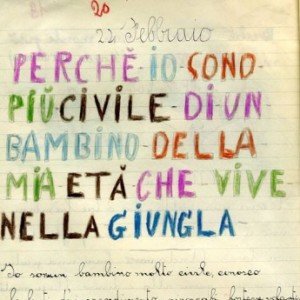 20
22 Febbraio
PERCHÈ IO SONO
PIÚ CIVILE DI UN
BAMBINO DELLA
MIA ETÁ CHE VIVE
NELLA GIUNGLA
Io sono un bambino molto civile, conosco